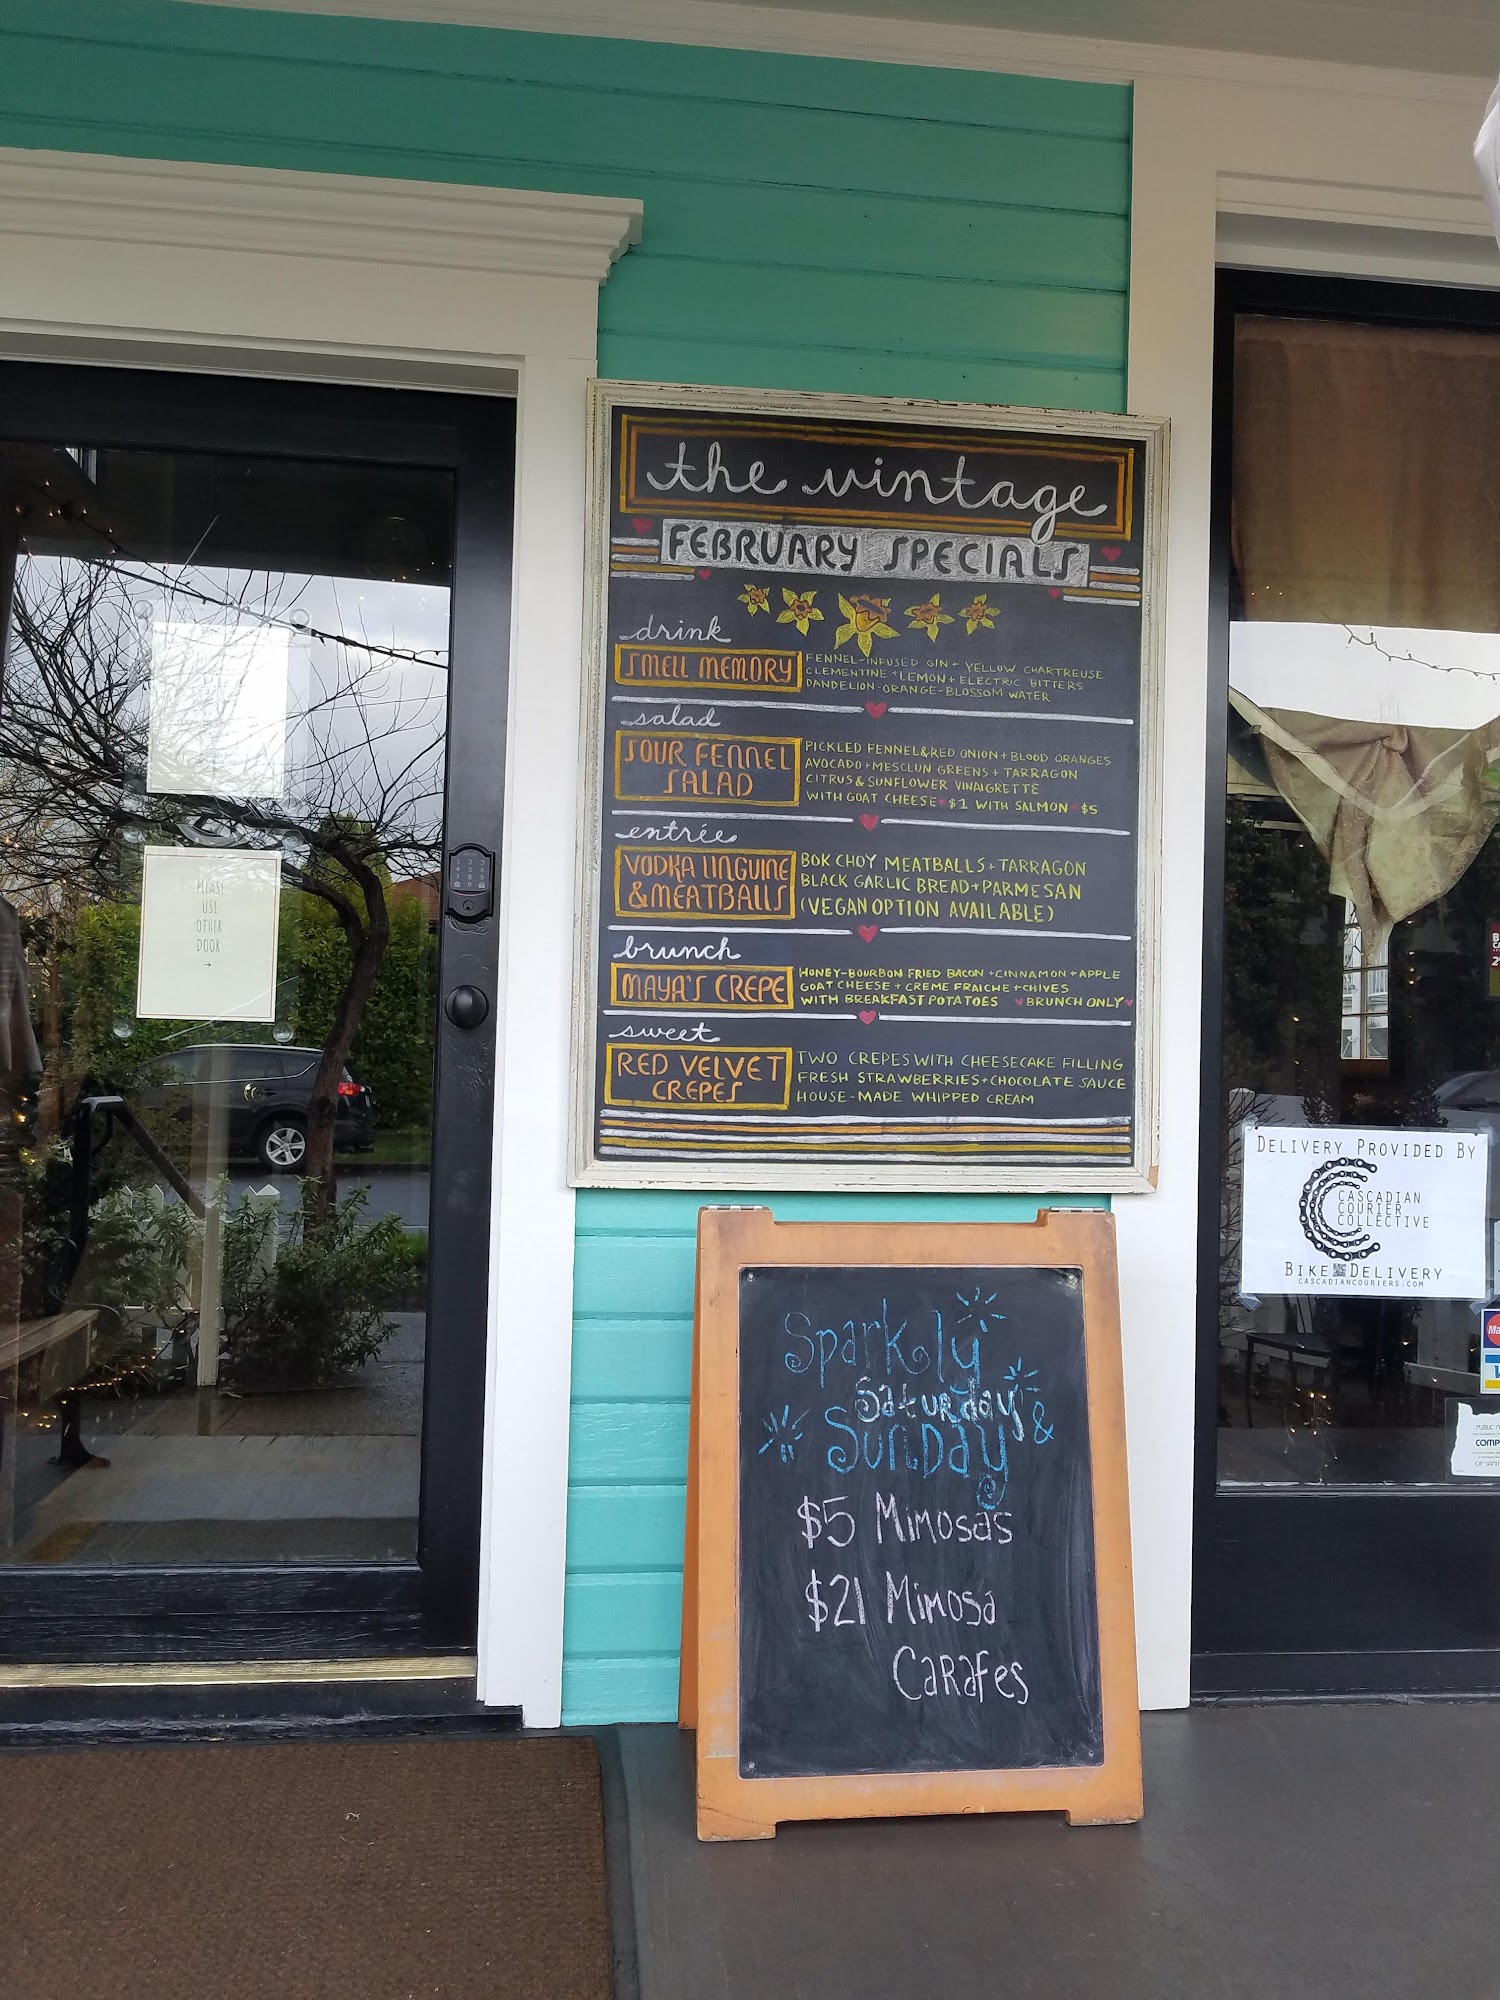 the vintage
FEBRUARY SPECIALS
drink
SMELL MEMORY
FENNEL-INFUSED GIN + YELLOW CHARTREUSE
CLEMENTINE + LEMON + ELECTRIC BITTERS
DANDELION-ORANGE-BLOSSOM WATER
salad
SOUR FENNEL
SALAD
PICKLED FENNEL & RED ONION + BLOOD ORANGES
AVOCADO + MESCLUN GREENS + TARRAGON
CITRUS & SUNFLOWER VINAIGRETTE
WITH GOAT CHEESE $1 WITH SALMON $5
entrée
VODKA LINGUINE
& MEATBALLS
BOK CHOY MEATBALLS + TARRAGON
BLACK GARLIC BREAD + PARMESAN
(VEGAN OPTION AVAILABLE)
brunch
MAYA'S CREPE
HONEY-BOURBON FRIED BACON + CINNAMON + APPLE
GOAT CHEESE + CREME FRAICHE + CHIVES
WITH BREAKFAST POTATOES ♥ BRUNCH ONLY ♥
sweet
RED VELVET
CREPES
TWO CREPES WITH CHEESECAKE FILLING
FRESH STRAWBERRIES + CHOCOLATE SAUCE
HOUSE-MADE WHIPPED CREAM
PLEASE
USE
OTHER
DOOR
→
DELIVERY PROVIDED BY
CASCADIAN
COURIER
COLLECTIVE
BIKE DELIVERY
CASCADIANCOURIERS.COM
Sparkly
Saturday &
Sunday
$5 Mimosas
$21 Mimosa
Carafes